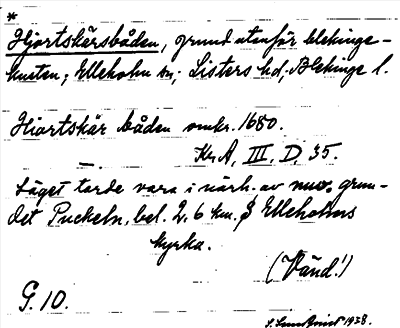 *
Hjortskärsbåden, grund utanför blekinge-
kusten; Elleholm sn; Listers hd, Blekinge l.
Hiortskär båden omkr. 1680.
Kr. A, III, D, 35.
Läget torde vara i närh. av nuv. grun-
det Puckeln, bel. 2,6 km. S Elleholms
kyrka.
(Vänd!)
G. 10.
1928.